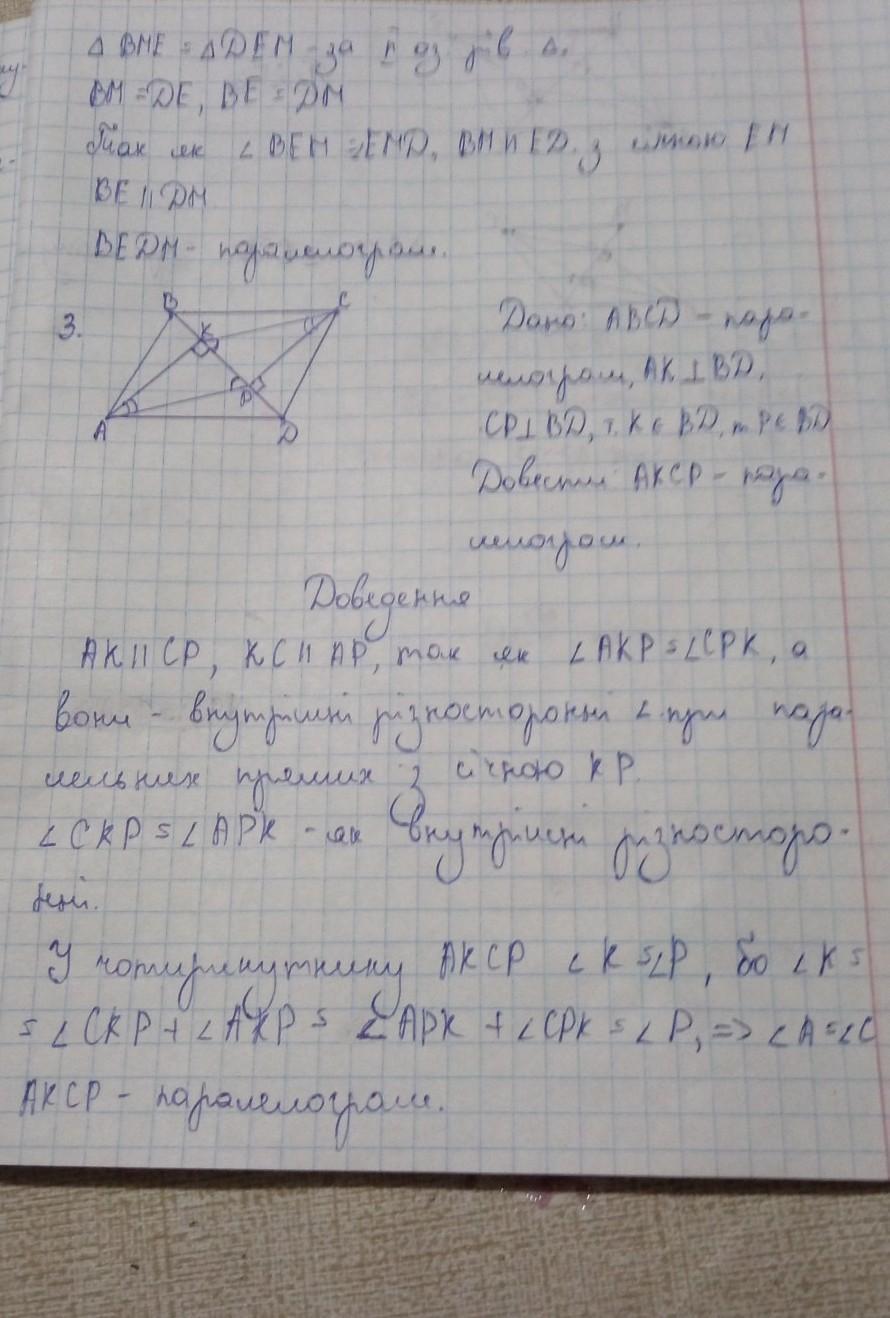 Δ BME = Δ DEM - за II оз рів Δ.
BM = DE, BE = DM
Так як ∠ BEM = EMD, BM ∥ ED. з січною EM
BE ∥ DM
BEDM - паралелограм.
3.
B C
K
P
A D
Дано: ABCD - пара-
лелограм, AK ⊥ BD,
CP ⊥ BD, т. K ∈ BD, т P ∈ BD
Довести: AKCP - пара-
лелограм.
Доведення
AK ∥ CP, KC ∥ AP, так як ∠AKP = ∠CPK, а
вони - внутрішні різносторонні ∠ при пара-
лельних прямих з січною KP.
∠CKP = ∠APK - як внутрішні різносторо-
нні.
У чотирикутнику AKCP ∠K = ∠P, бо ∠K =
= ∠CKP + ∠AKP = ∠APK + ∠CPK = ∠P, => ∠A = ∠C
AKCP - паралелограм.